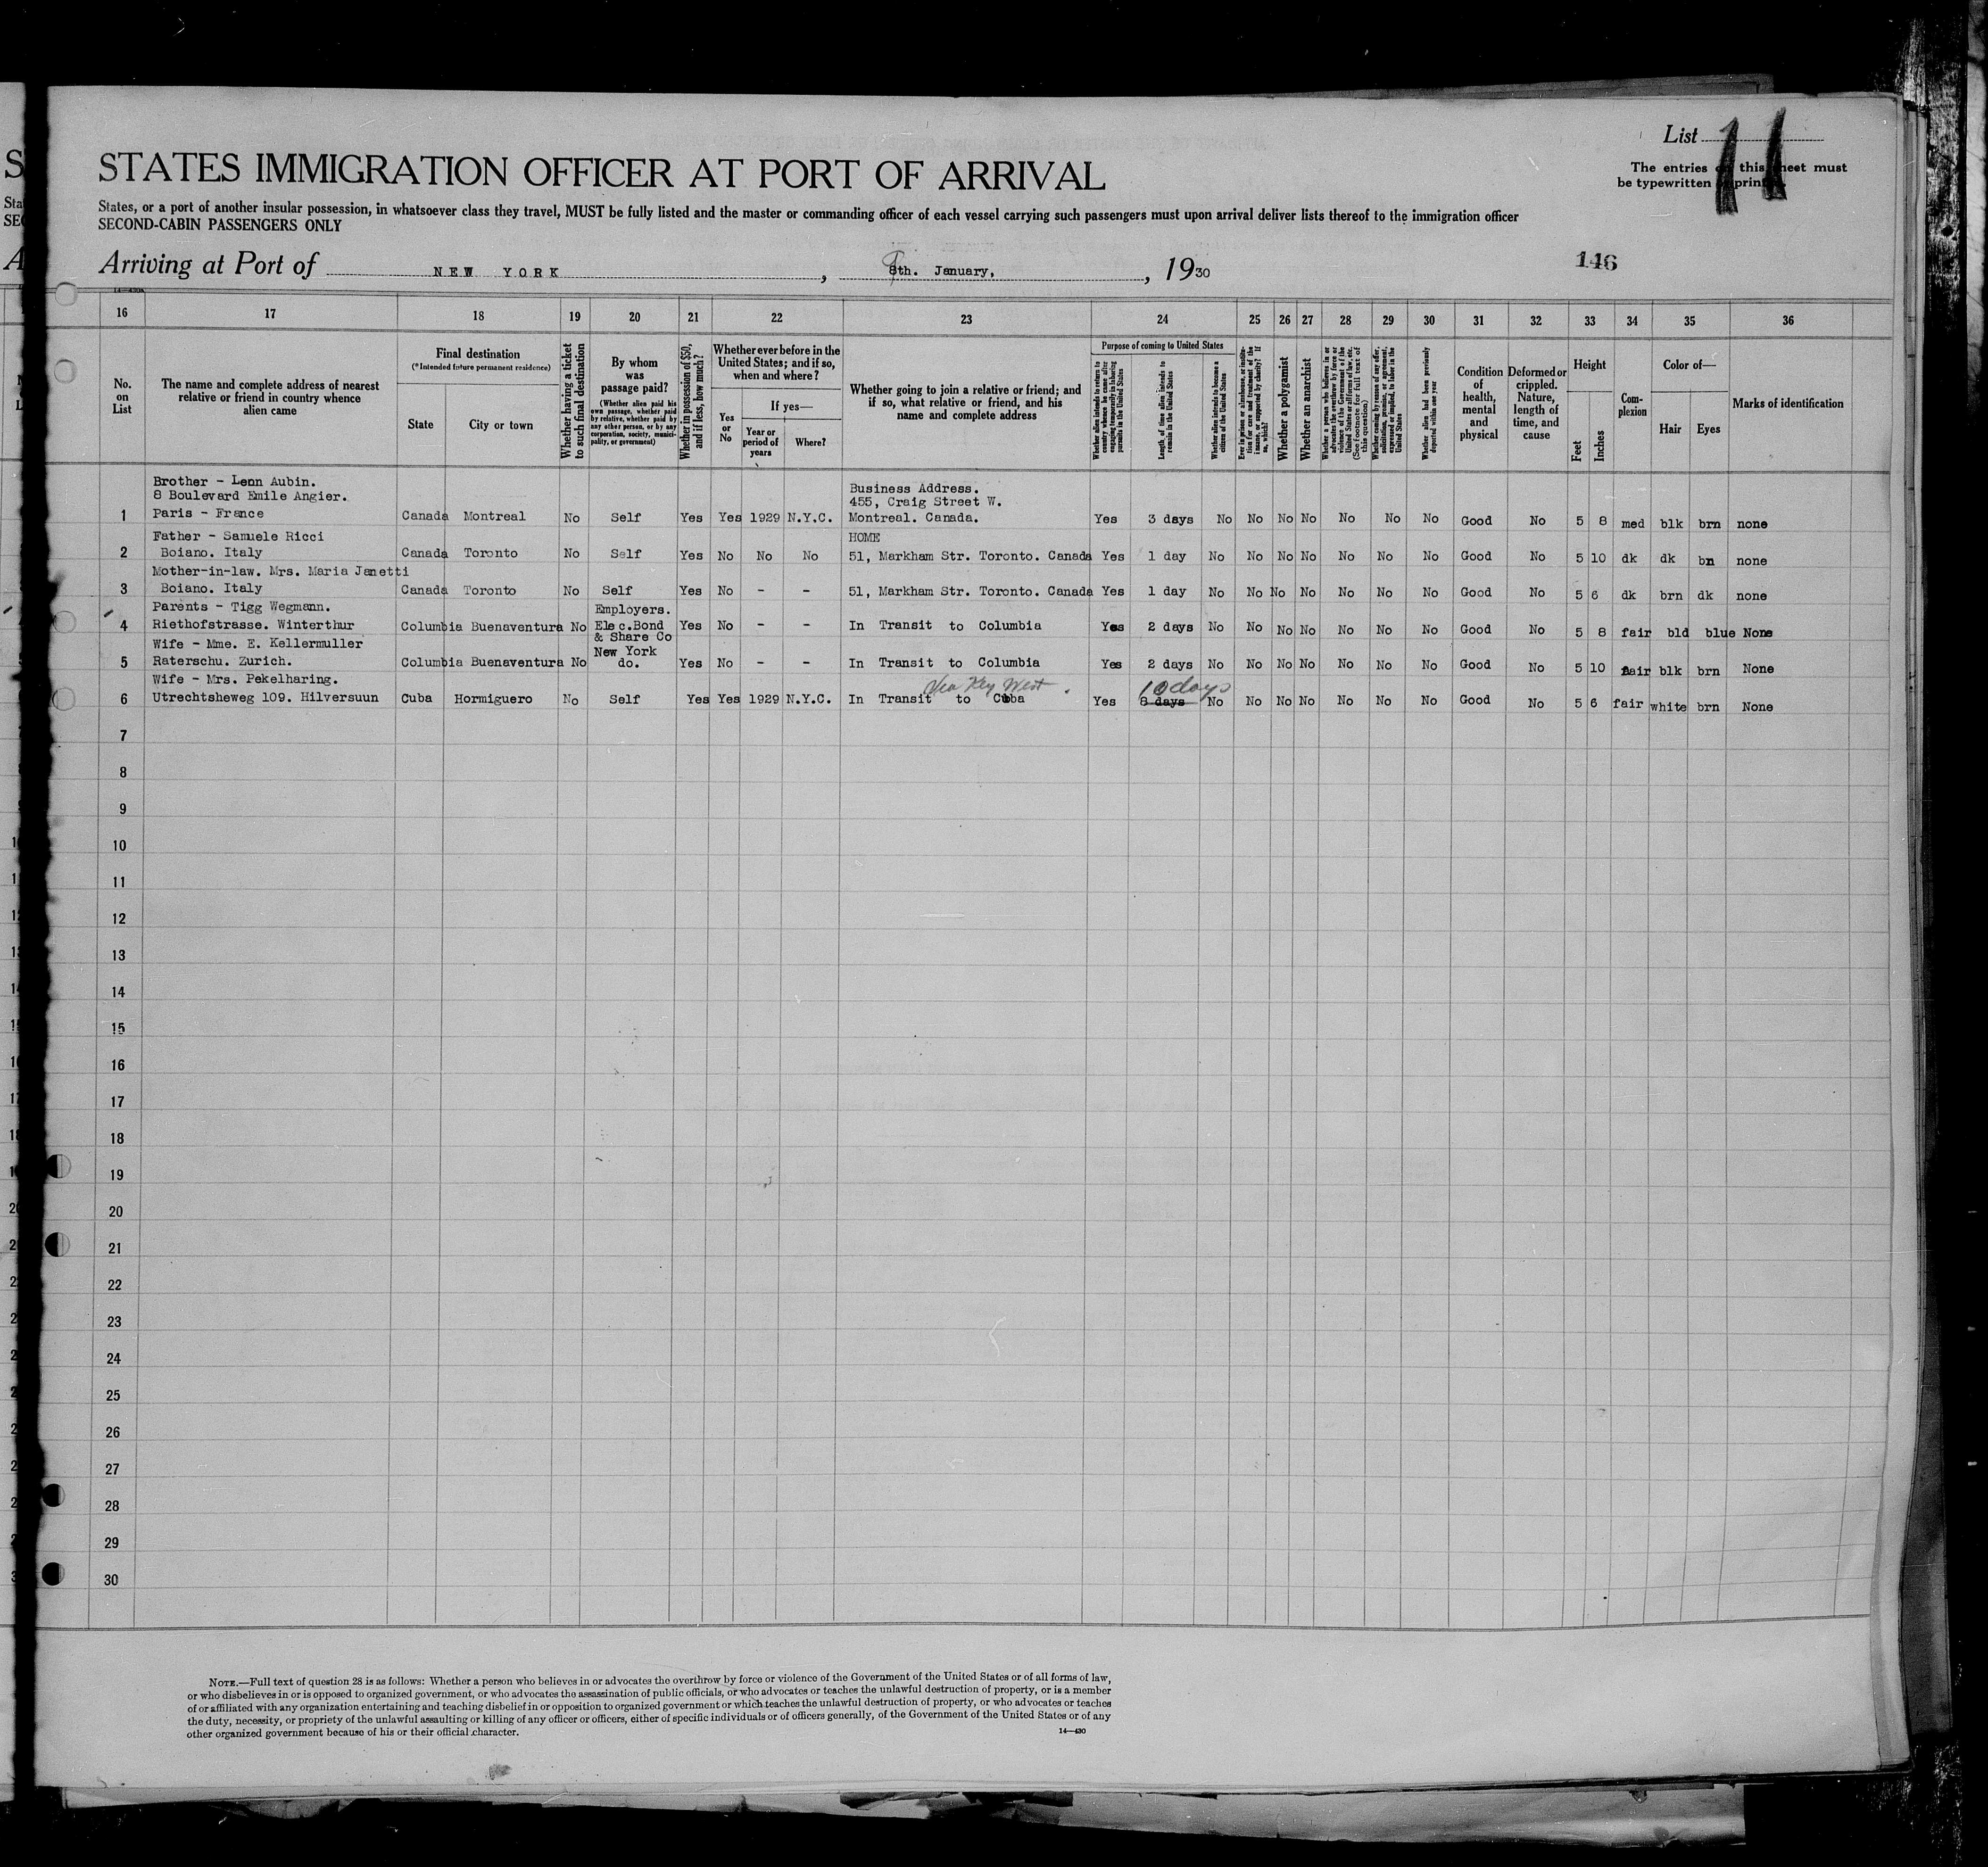 List 11
STATES IMMIGRATION OFFICER AT PORT OF ARRIVAL
The entries on this sheet must
be typewritten or printed.
States, or a port of another insular possession, in whatsoever class they travel, MUST be fully listed and the master or commanding officer of each vessel carrying such passengers must upon arrival deliver lists thereof to the immigration officer
SECOND-CABIN PASSENGERS ONLY
Arriving at Port of NEW YORK, 8th. January, 1930
146
16 17 18 19 20 21 22 23 24 25 26 27 28 29 30 31 32 33 34 35 36
No. on List
The name and complete address of nearest relative or friend in country whence alien came
Final destination
(*Intended future permanent residence)
State
City or town
Whether having a ticket to such final destination
By whom was passage paid?
(Whether alien paid his own passage, whether paid by relative, whether paid by any other person, or by any corporation, society, municipality, or government)
Whether in possession of $50, and if less, how much?
Whether ever before in the United States; and if so, when and where?
Yes or No
If yes—
Year or period of years
Where?
Whether going to join a relative or friend; and if so, what relative or friend, and his name and complete address
Purpose of coming to United States
Whether alien intends to return to country whence he came after engaging temporarily in laboring pursuits in the United States
Length of time alien intends to remain in the United States
Whether alien intends to become a citizen of the United States
Ever in prison or almshouse, or institution for care and treatment of the insane, or supported by charity? If so, which?
Whether a polygamist
Whether an anarchist
Whether a person who believes in or advocates the overthrow by force or violence of the Government of the United States or all forms of law, etc. (See footnote for full text of this question)
Whether coming by reason of any offer, solicitation, promise, or agreement, expressed or implied, to labor in the United States
Whether alien had been previously deported within one year
Condition of health, mental and physical
Deformed or crippled. Nature, length of time, and cause
Height
Feet
Inches
Complexion
Color of—
Hair
Eyes
Marks of identification
Brother - Leon Aubin.
8 Boulevard Emile Angier. Business Address.
455, Craig Street W.
1 Paris - France Canada Montreal No Self Yes Yes 1929 N.Y.C. Montreal. Canada. Yes 3 days No No No No No No No Good No 5 8 med blk brn none
Father - Samuele Ricci HOME
2 Boiano. Italy Canada Toronto No Self Yes No No No 51, Markham Str. Toronto. Canada Yes 1 day No No No No No No No Good No 5 10 dk dk bn none
Mother-in-law. Mrs. Maria Janetti
3 Boiano. Italy Canada Toronto No Self Yes No - - 51, Markham Str. Toronto. Canada Yes 1 day No No No No No No No Good No 5 6 dk brn dk none
Parents - Tigg Wegmann. Employers.
4 Riethofstrasse. Winterthur Columbia Buenaventura No Elec.Bond Yes No - - In Transit to Columbia Yes 2 days No No No No No No No Good No 5 8 fair bld blue None
& Share Co
Wife - Mme. E. Kellermuller New York
5 Raterschu. Zurich. Columbia Buenaventura No do. Yes No - - In Transit to Columbia Yes 2 days No No No No No No No Good No 5 10 fair blk brn None
Wife - Mrs. Pekelharing. Via Key West. 10 days
6 Utrechtsheweg 109. Hilversuun Cuba Hormiguero No Self Yes Yes 1929 N.Y.C. In Transit to Cuba Yes 8 days No No No No No No No Good No 5 6 fair white brn None
7
8
9
10
11
12
13
14
15
16
17
18
19
20
21
22
23
24
25
26
27
28
29
30
NOTE.—Full text of question 28 is as follows: Whether a person who believes in or advocates the overthrow by force or violence of the Government of the United States or of all forms of law,
or who disbelieves in or is opposed to organized government, or who advocates the assassination of public officials, or who advocates or teaches the unlawful destruction of property, or is a member
of or affiliated with any organization entertaining and teaching disbelief in or opposition to organized government or which teaches the unlawful destruction of property, or who advocates or teaches
the duty, necessity, or propriety of the unlawful assaulting or killing of any officer or officers, either of specific individuals or of officers generally, of the Government of the United States or of any
other organized government because of his or their official character. 14—430